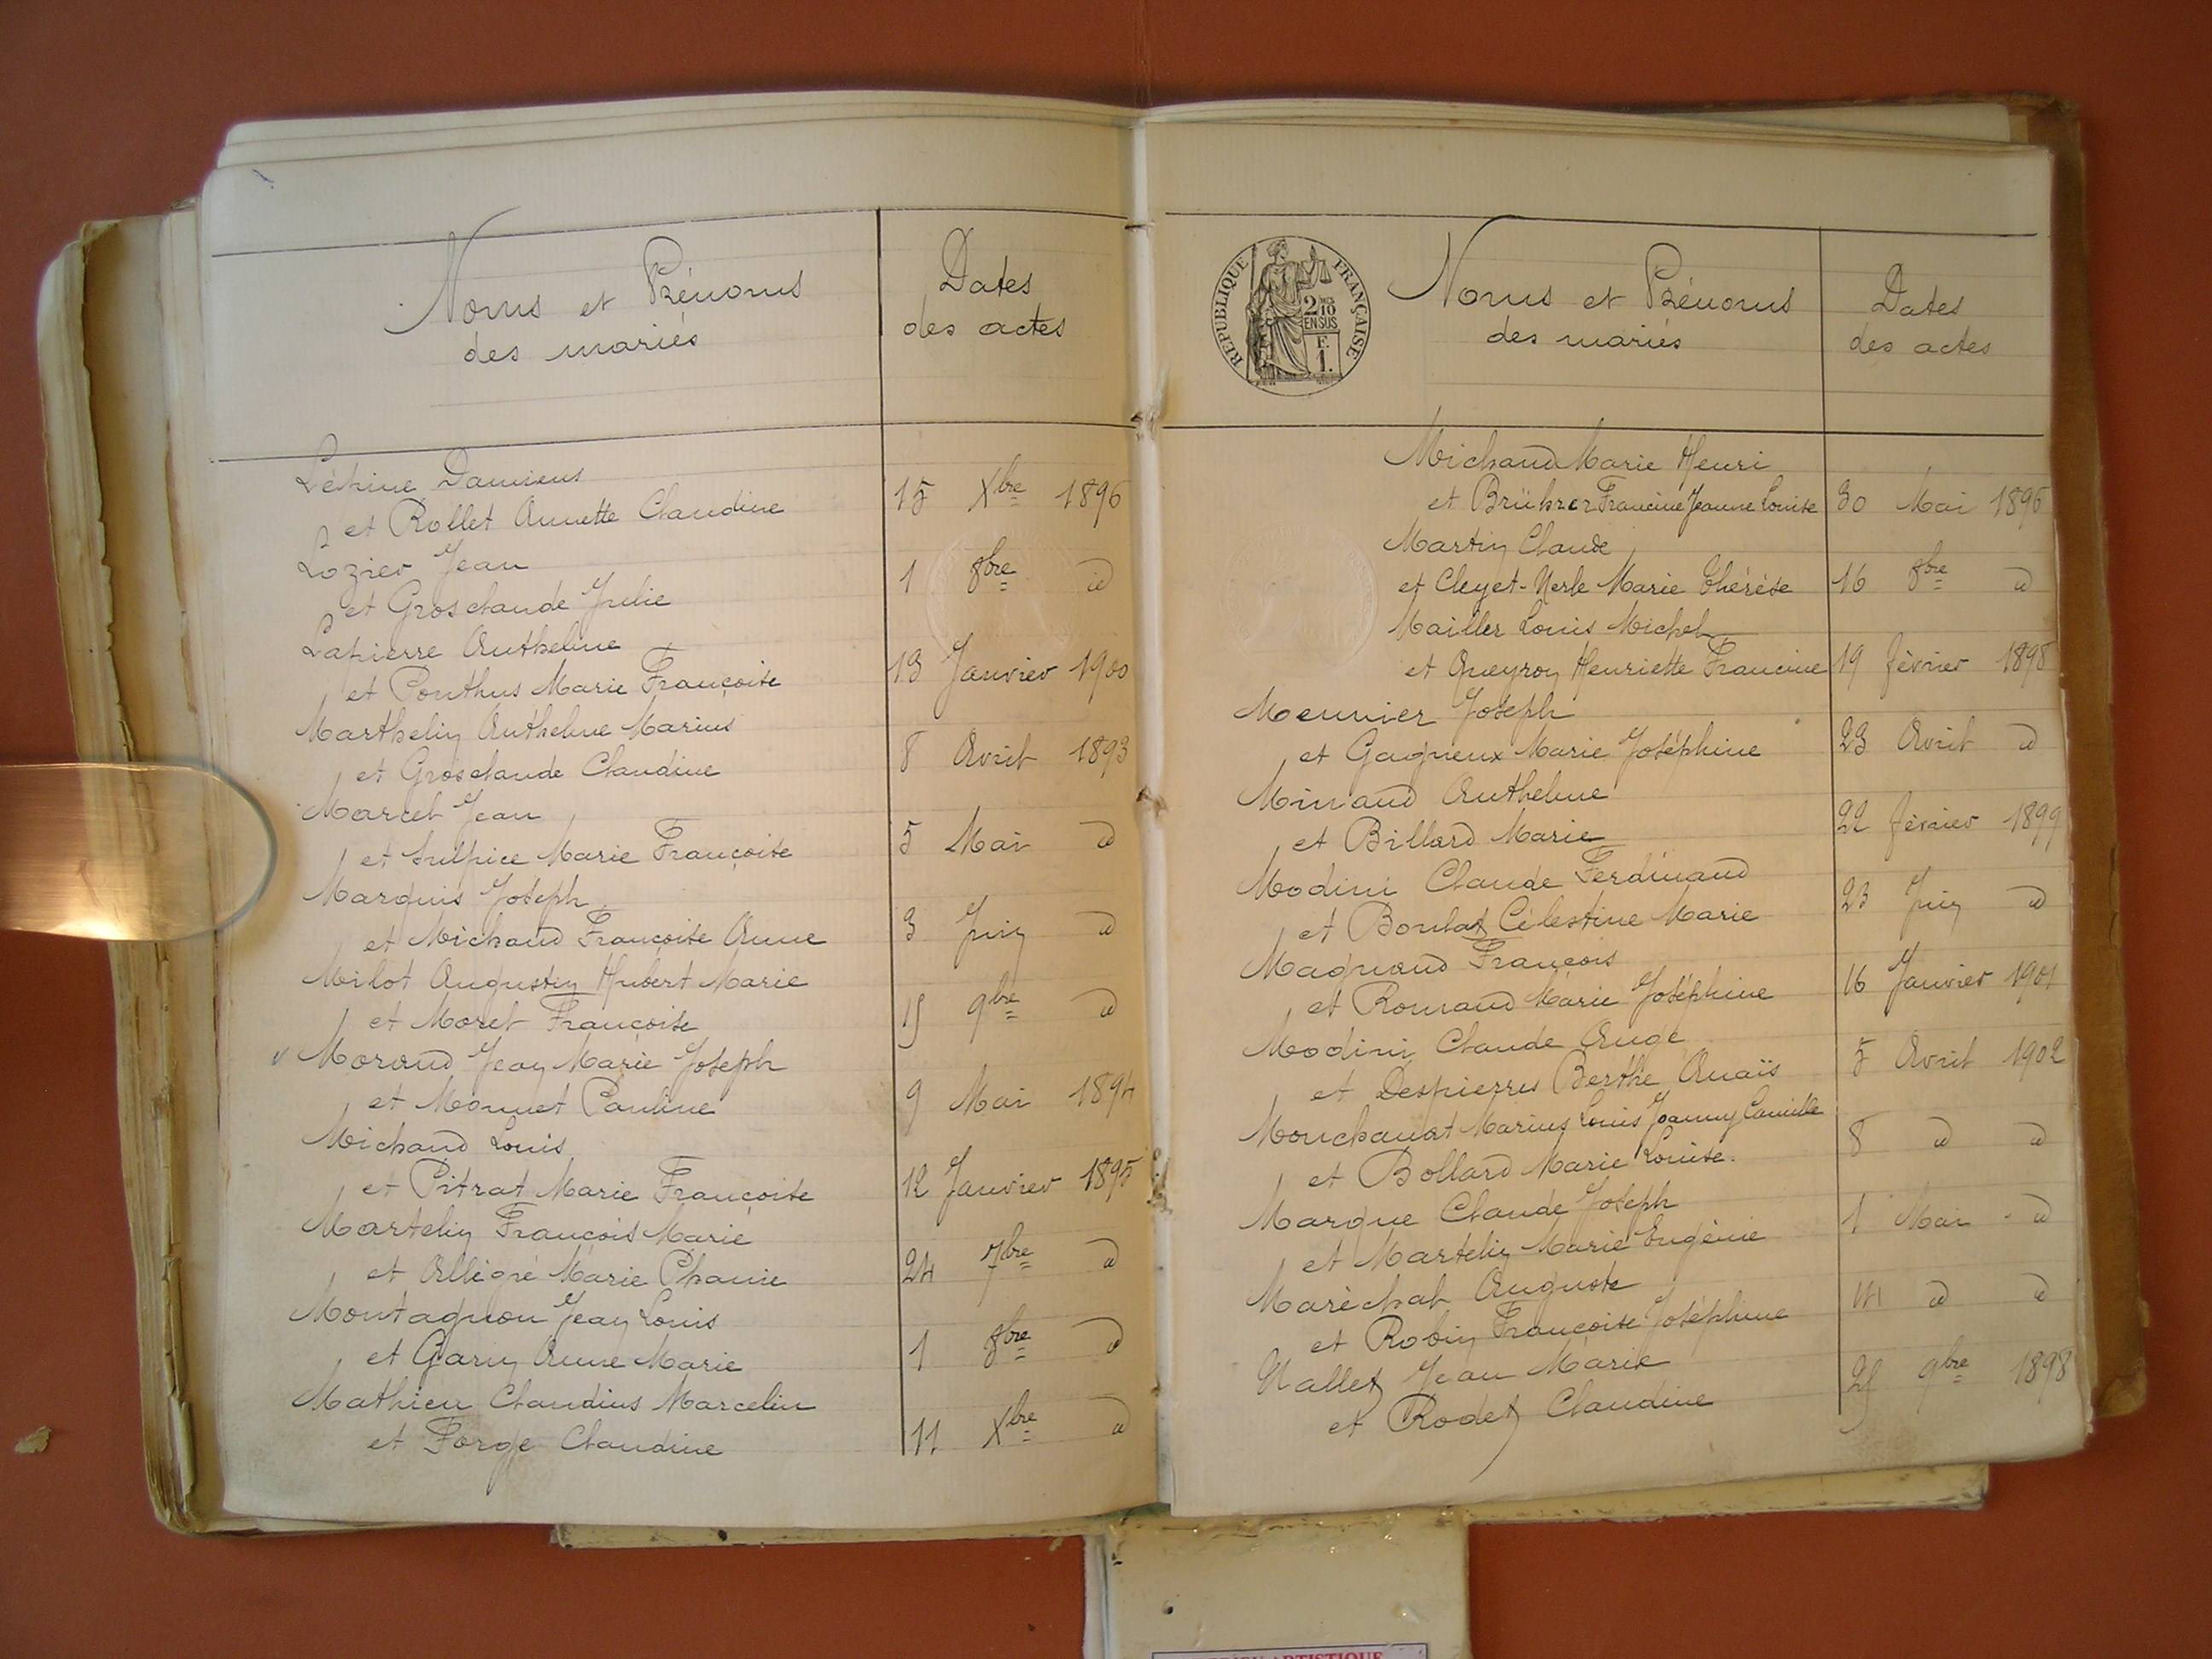 Noms et Prénoms
des mariés
Dates
des actes
Lépine Damiens
et Rollet Annette Claudine
15 Xbre 1896
Lozier Jean
et Grosclaude Julie
1 8bre d
Lapierre Anthelme
et Ponthus Marie Françoise
13 Janvier 1900
Marthelin Anthelme Marius
et Grosclaude Claudine
8 Avril 1893
Marcel Jean
et Sulpice Marie Françoise
5 Mai d
Marquis Joseph
et Michaud Françoise Anne
3 Juin d
Milot Augustin Hubert Marie
et Morel Françoise
15 9bre d
Morand Jean Marie Joseph
et Monnet Pauline
9 Mai 1894
Michaud Louis
et Pitrat Marie Françoise
12 Janvier 1895
Martelin François Marie
et Allégré Marie Phanie
24 7bre d
Montagnon Jean Louis
et Garin Anne Marie
1 8bre d
Mathieu Claudius Marcelin
et Forge Claudine
11 Xbre d
RÉPUBLIQUE FRANÇAISE
2/10
EN SUS
F.
1.
Noms et Prénoms
des mariés
Dates
des actes
Michaud Marie Henri
et Brührer Francine Jeanne Louise
30 Mai 1896
Martin Claude
et Cleyet-Merle Marie Thérèse
16 8bre d
Mailler Louis Michel
et Queyron Henriette Francine
19 février 1898
Meunier Joseph
et Gagneux Marie Joséphine
23 Avril d
Minaud Anthelme
et Billard Marie
22 février 1899
Modini Claude Ferdinand
et Boulat Célestine Marie
23 Juin d
Magnand François
et Romand Marie Joséphine
16 Janvier 1901
Modini Claude Ange
et Despierres Berthe Anaïs
5 Avril 1902
Monchanat Marius Louis Joanny Camille
et Bollard Marie Louise.
8 d d
Marque Claude Joseph
et Martelin Marie Eugénie
1 Mai d
Maréchal Auguste
et Robin Françoise Joséphine
14 d d
Nallet Jean Marie
et Rodet Claudine
25 9bre 1898